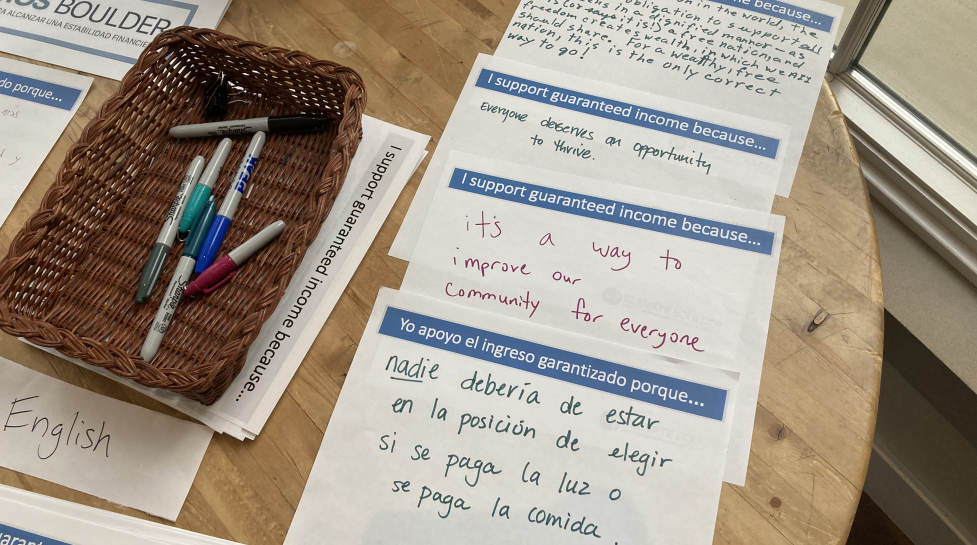 BOULDER
A ALCANZAR UNA ESTABILIDAD FINANCIE
do porque...
English
I support guaranteed income because...
me because...
in the world, the
obligation to support all
in a dignified manner – as
it is a free nation and
freedom creates wealth, in which we ALL
should share. For a wealthy, free
nation, this is the only correct
way to go!
I support guaranteed income because...
Everyone deserves an opportunity
to thrive.
I support guaranteed income because...
it's a way to
improve our
community for everyone
Yo apoyo el ingreso garantizado porque...
nadie debería de estar
en la posición de elegir
si se paga la luz o
se paga la comida.